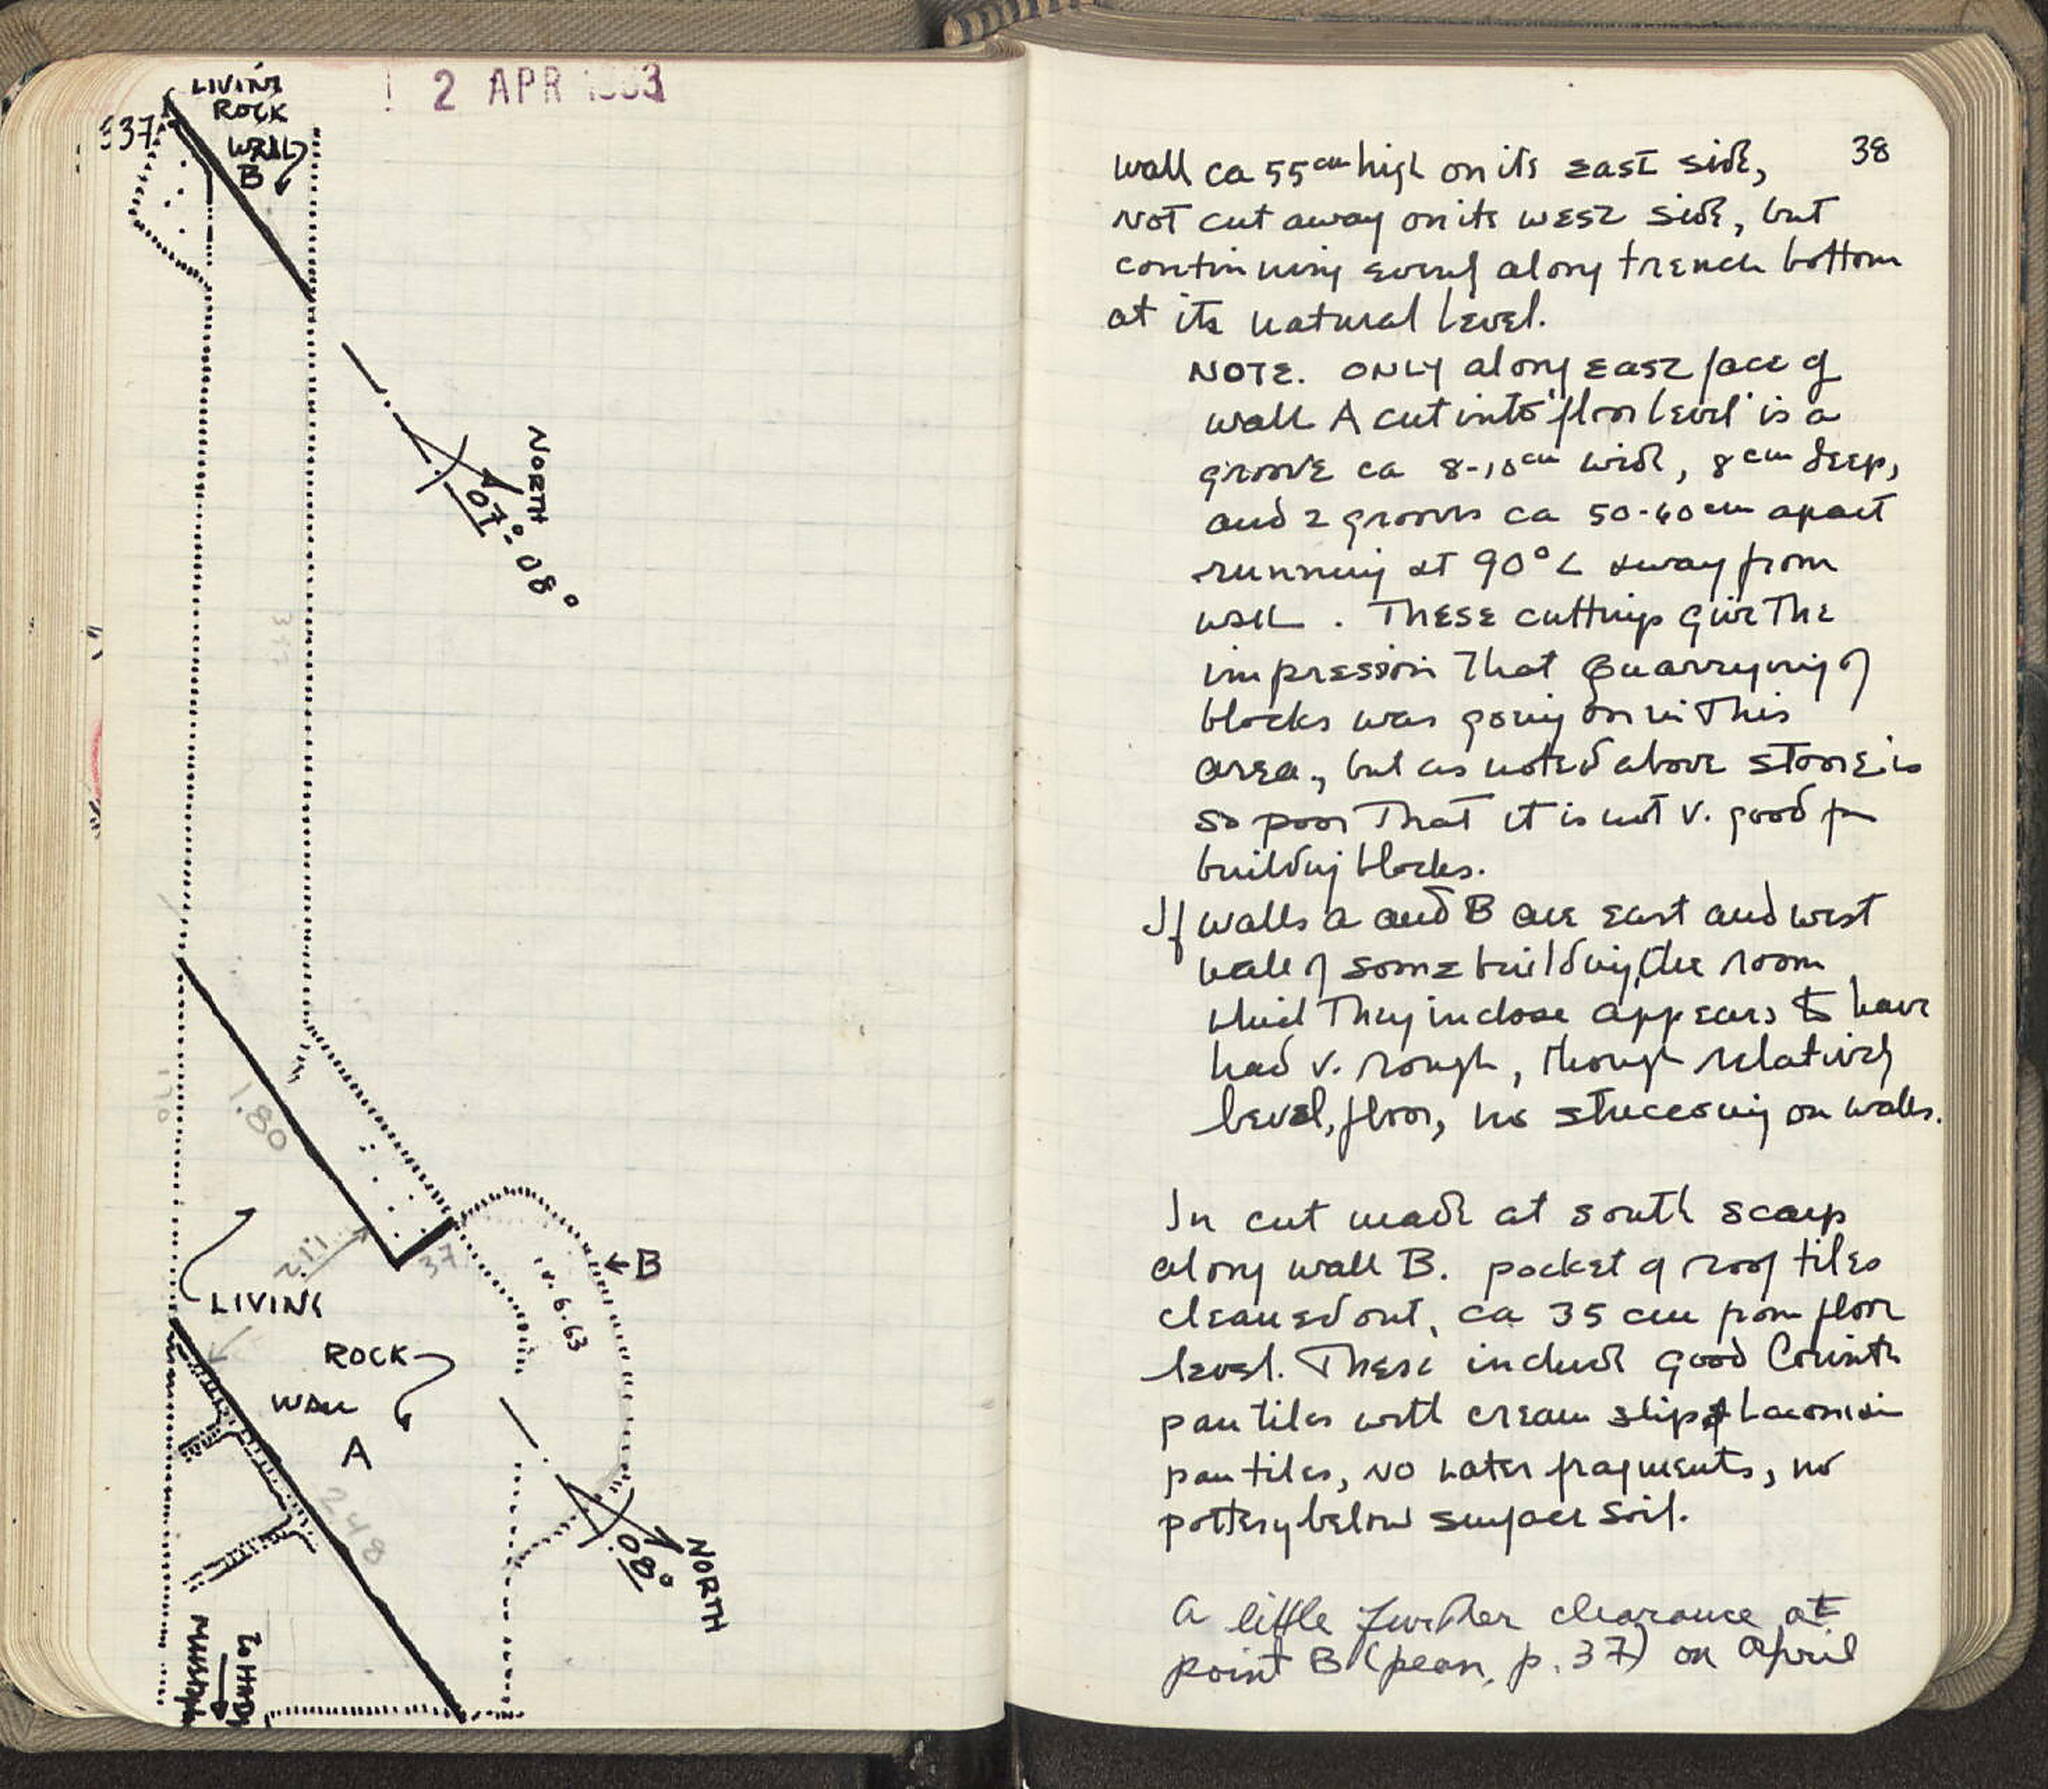 2 APR 1963
LIVING
ROCK
WALL
B
37
NORTH
07°-08°
1.80
2.11
37
B
6.63
LIVING
ROCK
WALL
A
2.48
08°
NORTH
TO HADJ
MUSTAPHA
38
wall ca 55cm high on its east side,
not cut away on its west side, but
continuing evenly along trench bottom
at its natural level.
NOTE. ONLY along east face of
wall A cut into 'floor level' is a
groove ca 8-10cm wide, 8cm deep,
and 2 grooves ca 50-60cm apart
running at 90° ∠ away from
wall. These cuttings give the
impression that quarrying of
blocks was going on in this
area, but as noted above stone is
so poor that it is not v. good for
building blocks.
If walls A and B are east and west
wall of some building, the room
which they inclose appears to have
had v. rough, though relatively
level, floor, no stuccoing on walls.
In cut made at south scarp
along wall B. pocket of roof tiles
cleaned out, ca 35 cm from floor
level. These include good Corinth
pan tiles with cream slip & Laconian
pan tiles, no later fragments, no
pottery below surface soil.
A little further clearance at
point B (plan, p. 37) on April